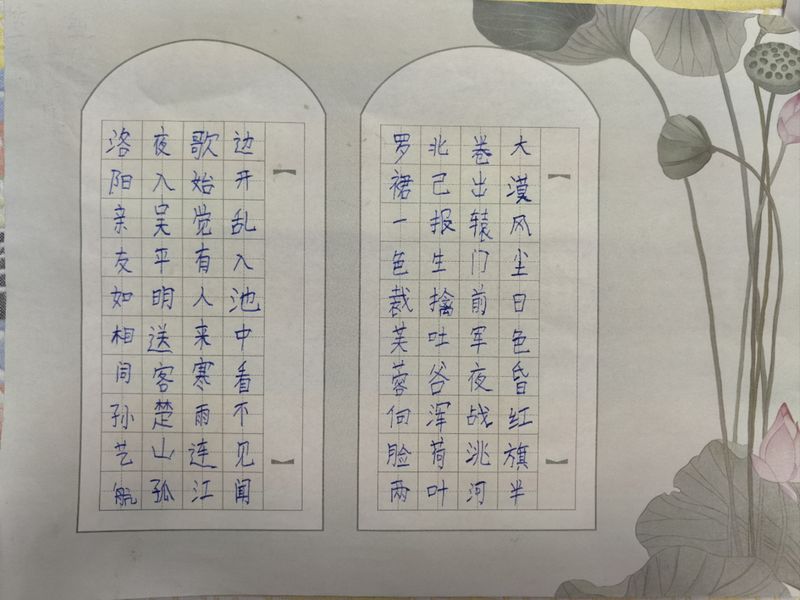 大漠风尘日色昏红旗半
卷出辕门前军夜战洮河
北己报生擒吐谷浑荷叶
罗裙一色裁芙蓉向脸两
边开乱入池中看不见闻
歌始觉有人来寒雨连江
夜入吴平明送客楚山孤
洛阳亲友如相问孙艺航